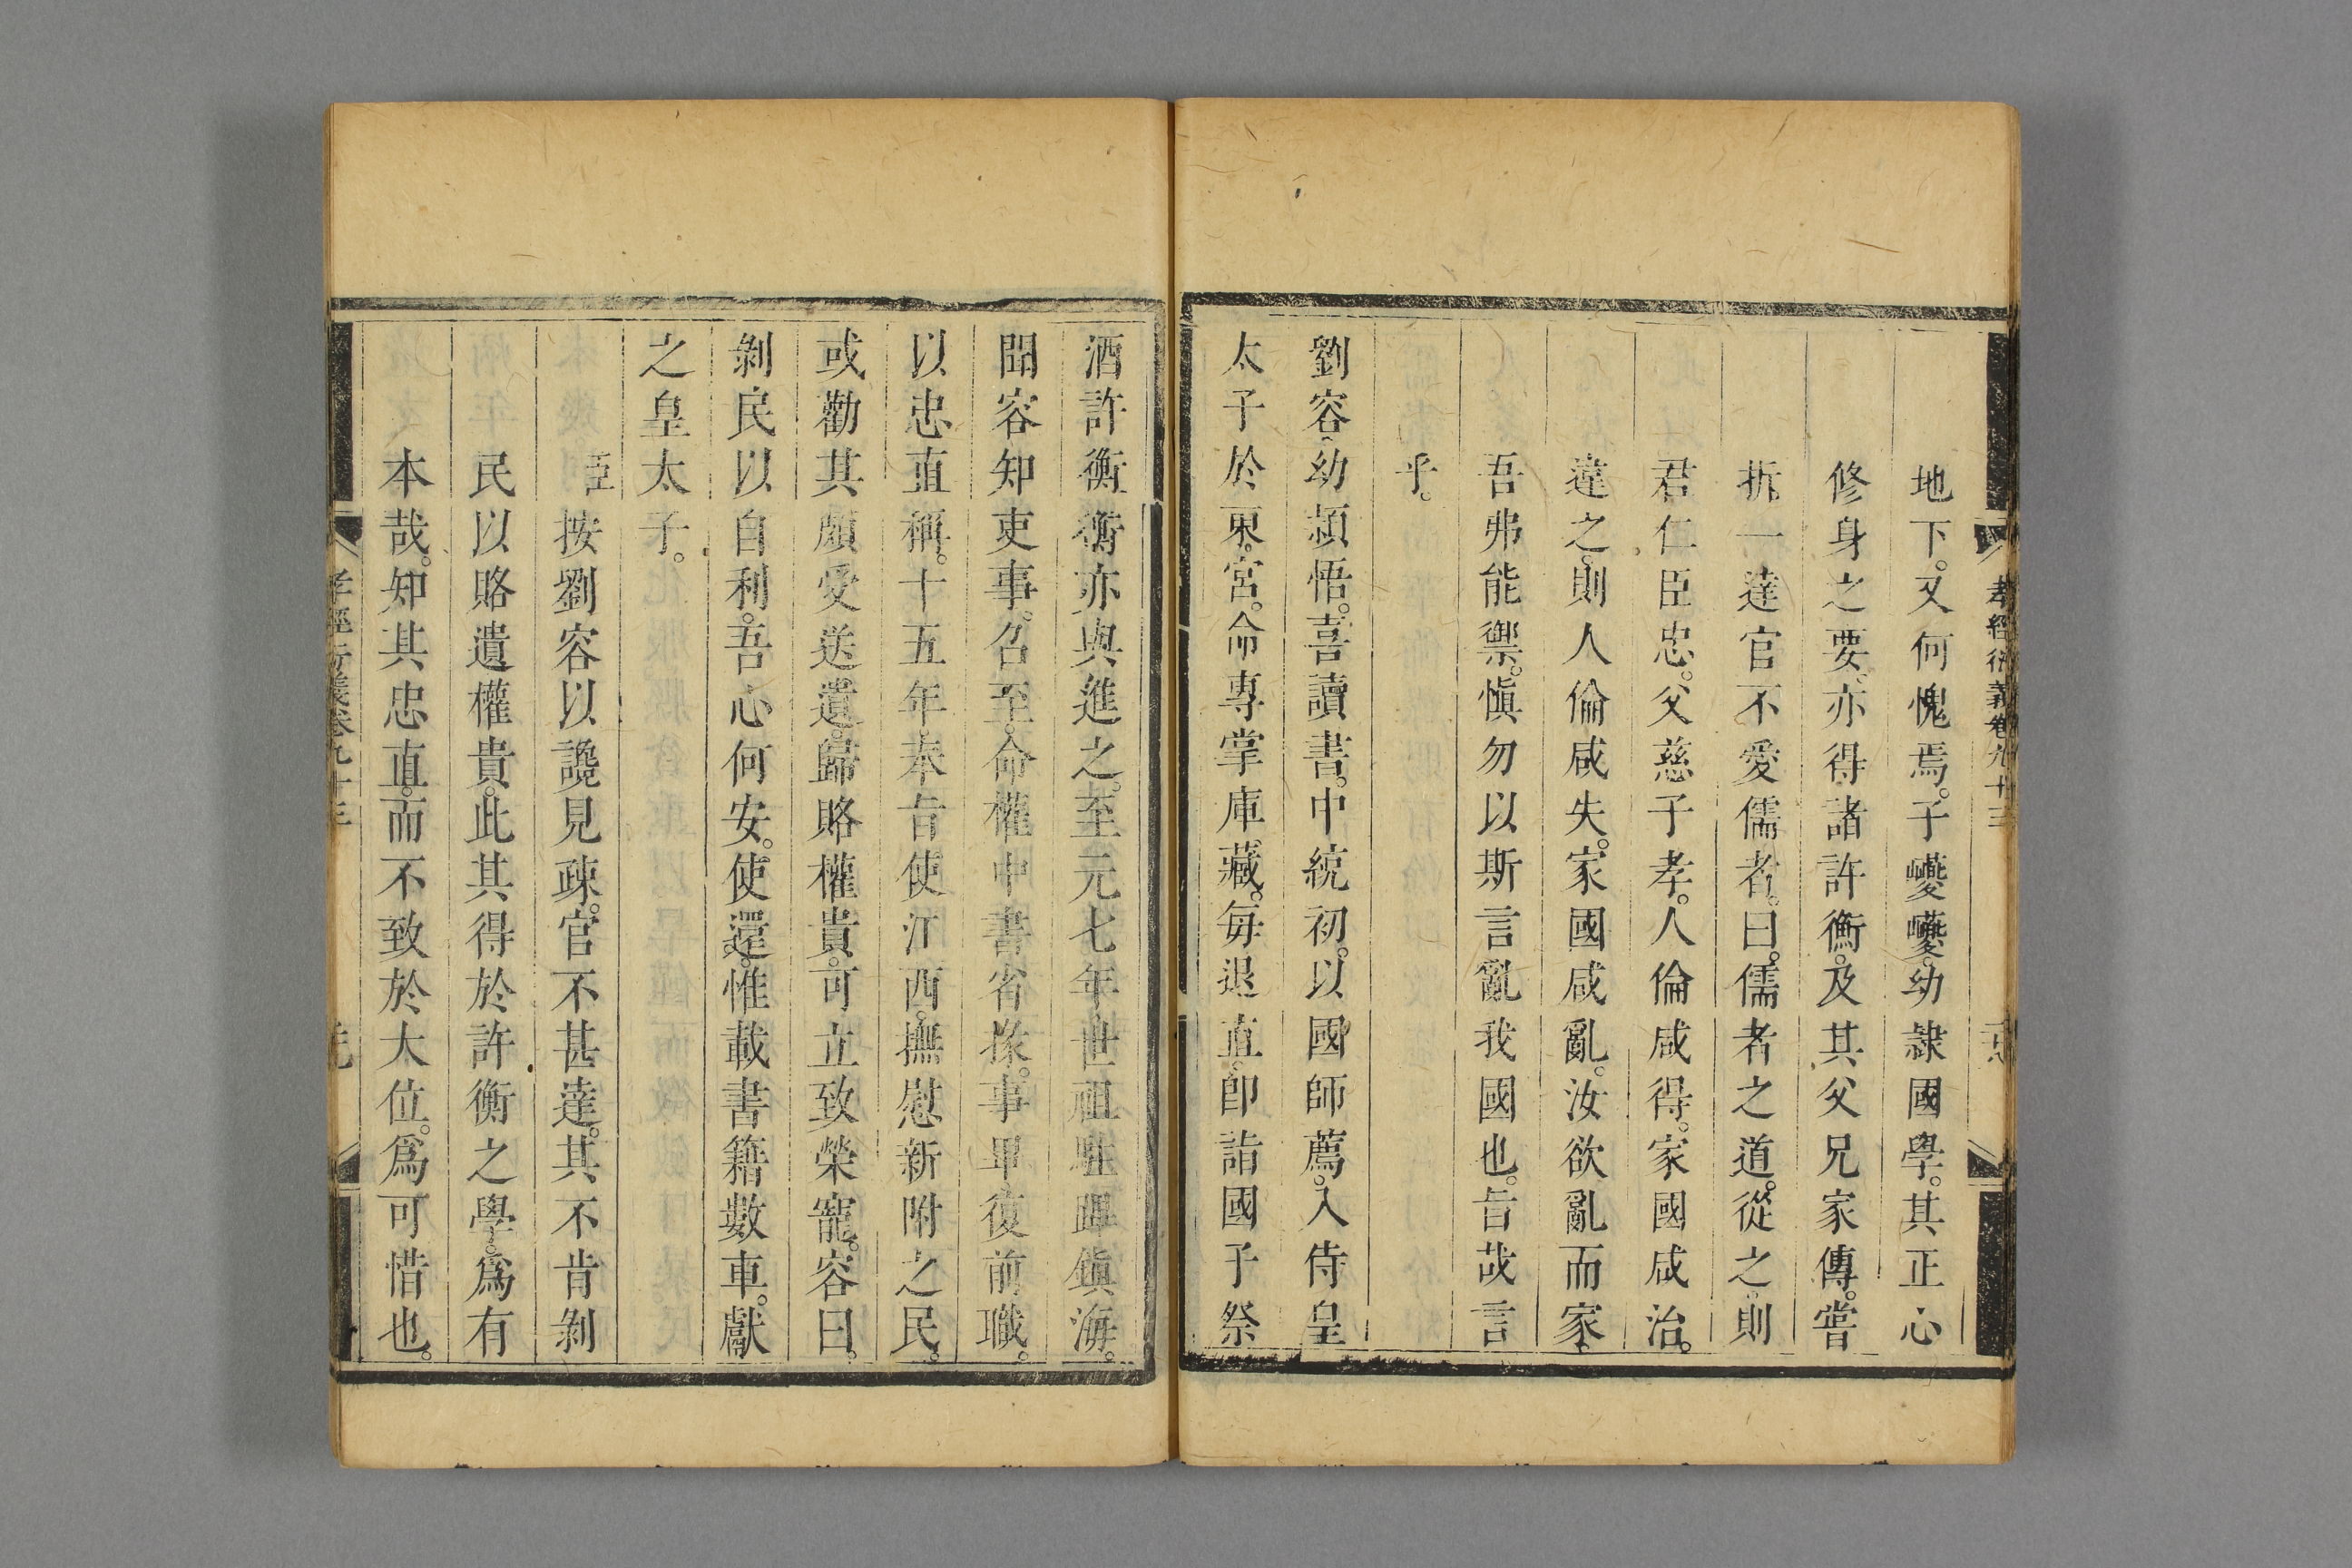 孝經衍義卷九十三
地下。又何愧焉。子巙巙。幼隸國學。其正心
修身之要。亦得諸許衡。及其父兄家傳。嘗
拆一達官不愛儒者。曰。儒者之道。從之。則
君仁臣忠。父慈子孝。人倫咸得。家國咸治。
違之。則人倫咸失。家國咸亂。汝欲亂而家。
吾弗能禦。愼勿以斯言亂我國也。旨哉言
乎。
劉容。幼頴悟。喜讀書。中統初。以國師薦。入侍皇
太子於東宮。命專掌庫藏。每退直。卽詣國子祭
酒許衡。衡亦與進之。至元七年。世祖駐蹕鎭海。
聞容知吏事。召至。命權中書省掾。事畢。復前職。
以忠直稱。十五年。奉旨使江西。撫慰新附之民。
或勸其頗受送遺。歸賂權貴。可立致榮寵。容曰。
剝民以自利。吾心何安。使還。惟載書籍數車。獻
之皇太子。
臣按劉容以讒見疎。官不甚達。其不肯剝
民以賂遺權貴。此其得於許衡之學。爲有
本哉。知其忠直。而不致於大位。爲可惜也。
孝經衍義卷九十三